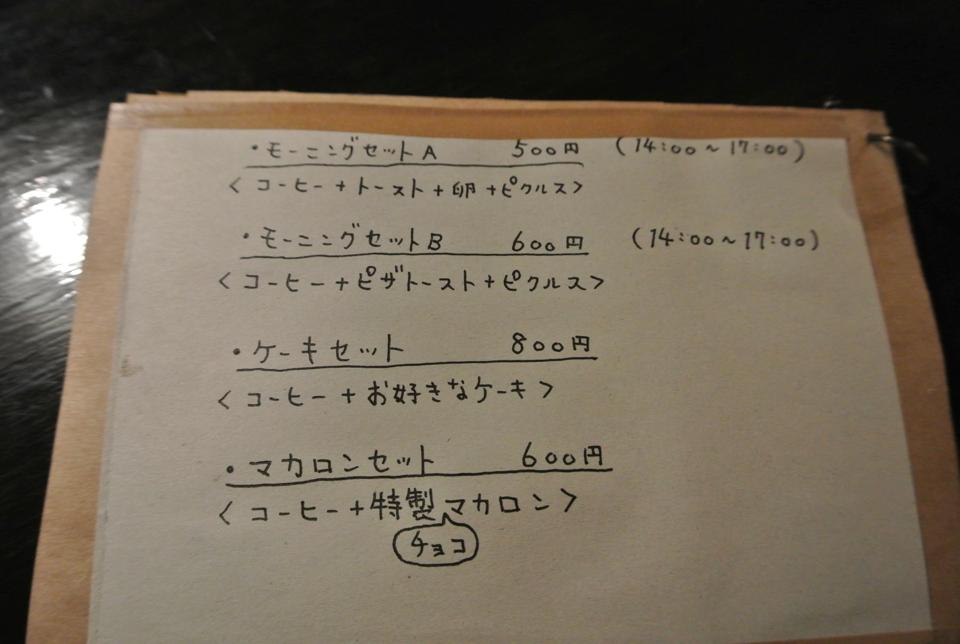 ・モーニングセットA 500円 (14:00~17:00)
<コーヒー+トースト+卵+ピクルス>
・モーニングセットB 600円 (14:00~17:00)
<コーヒー+ピザトースト+ピクルス>
・ケーキセット 800円
<コーヒー+お好きなケーキ>
・マカロンセット 600円
<コーヒー+特製マカロン>
チョコ